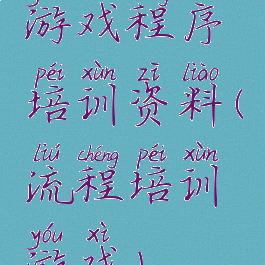 游戏程序
péi xùn zī liào
培训资料(
liú chéng péi xùn
流程培训
yóu xì
游戏)